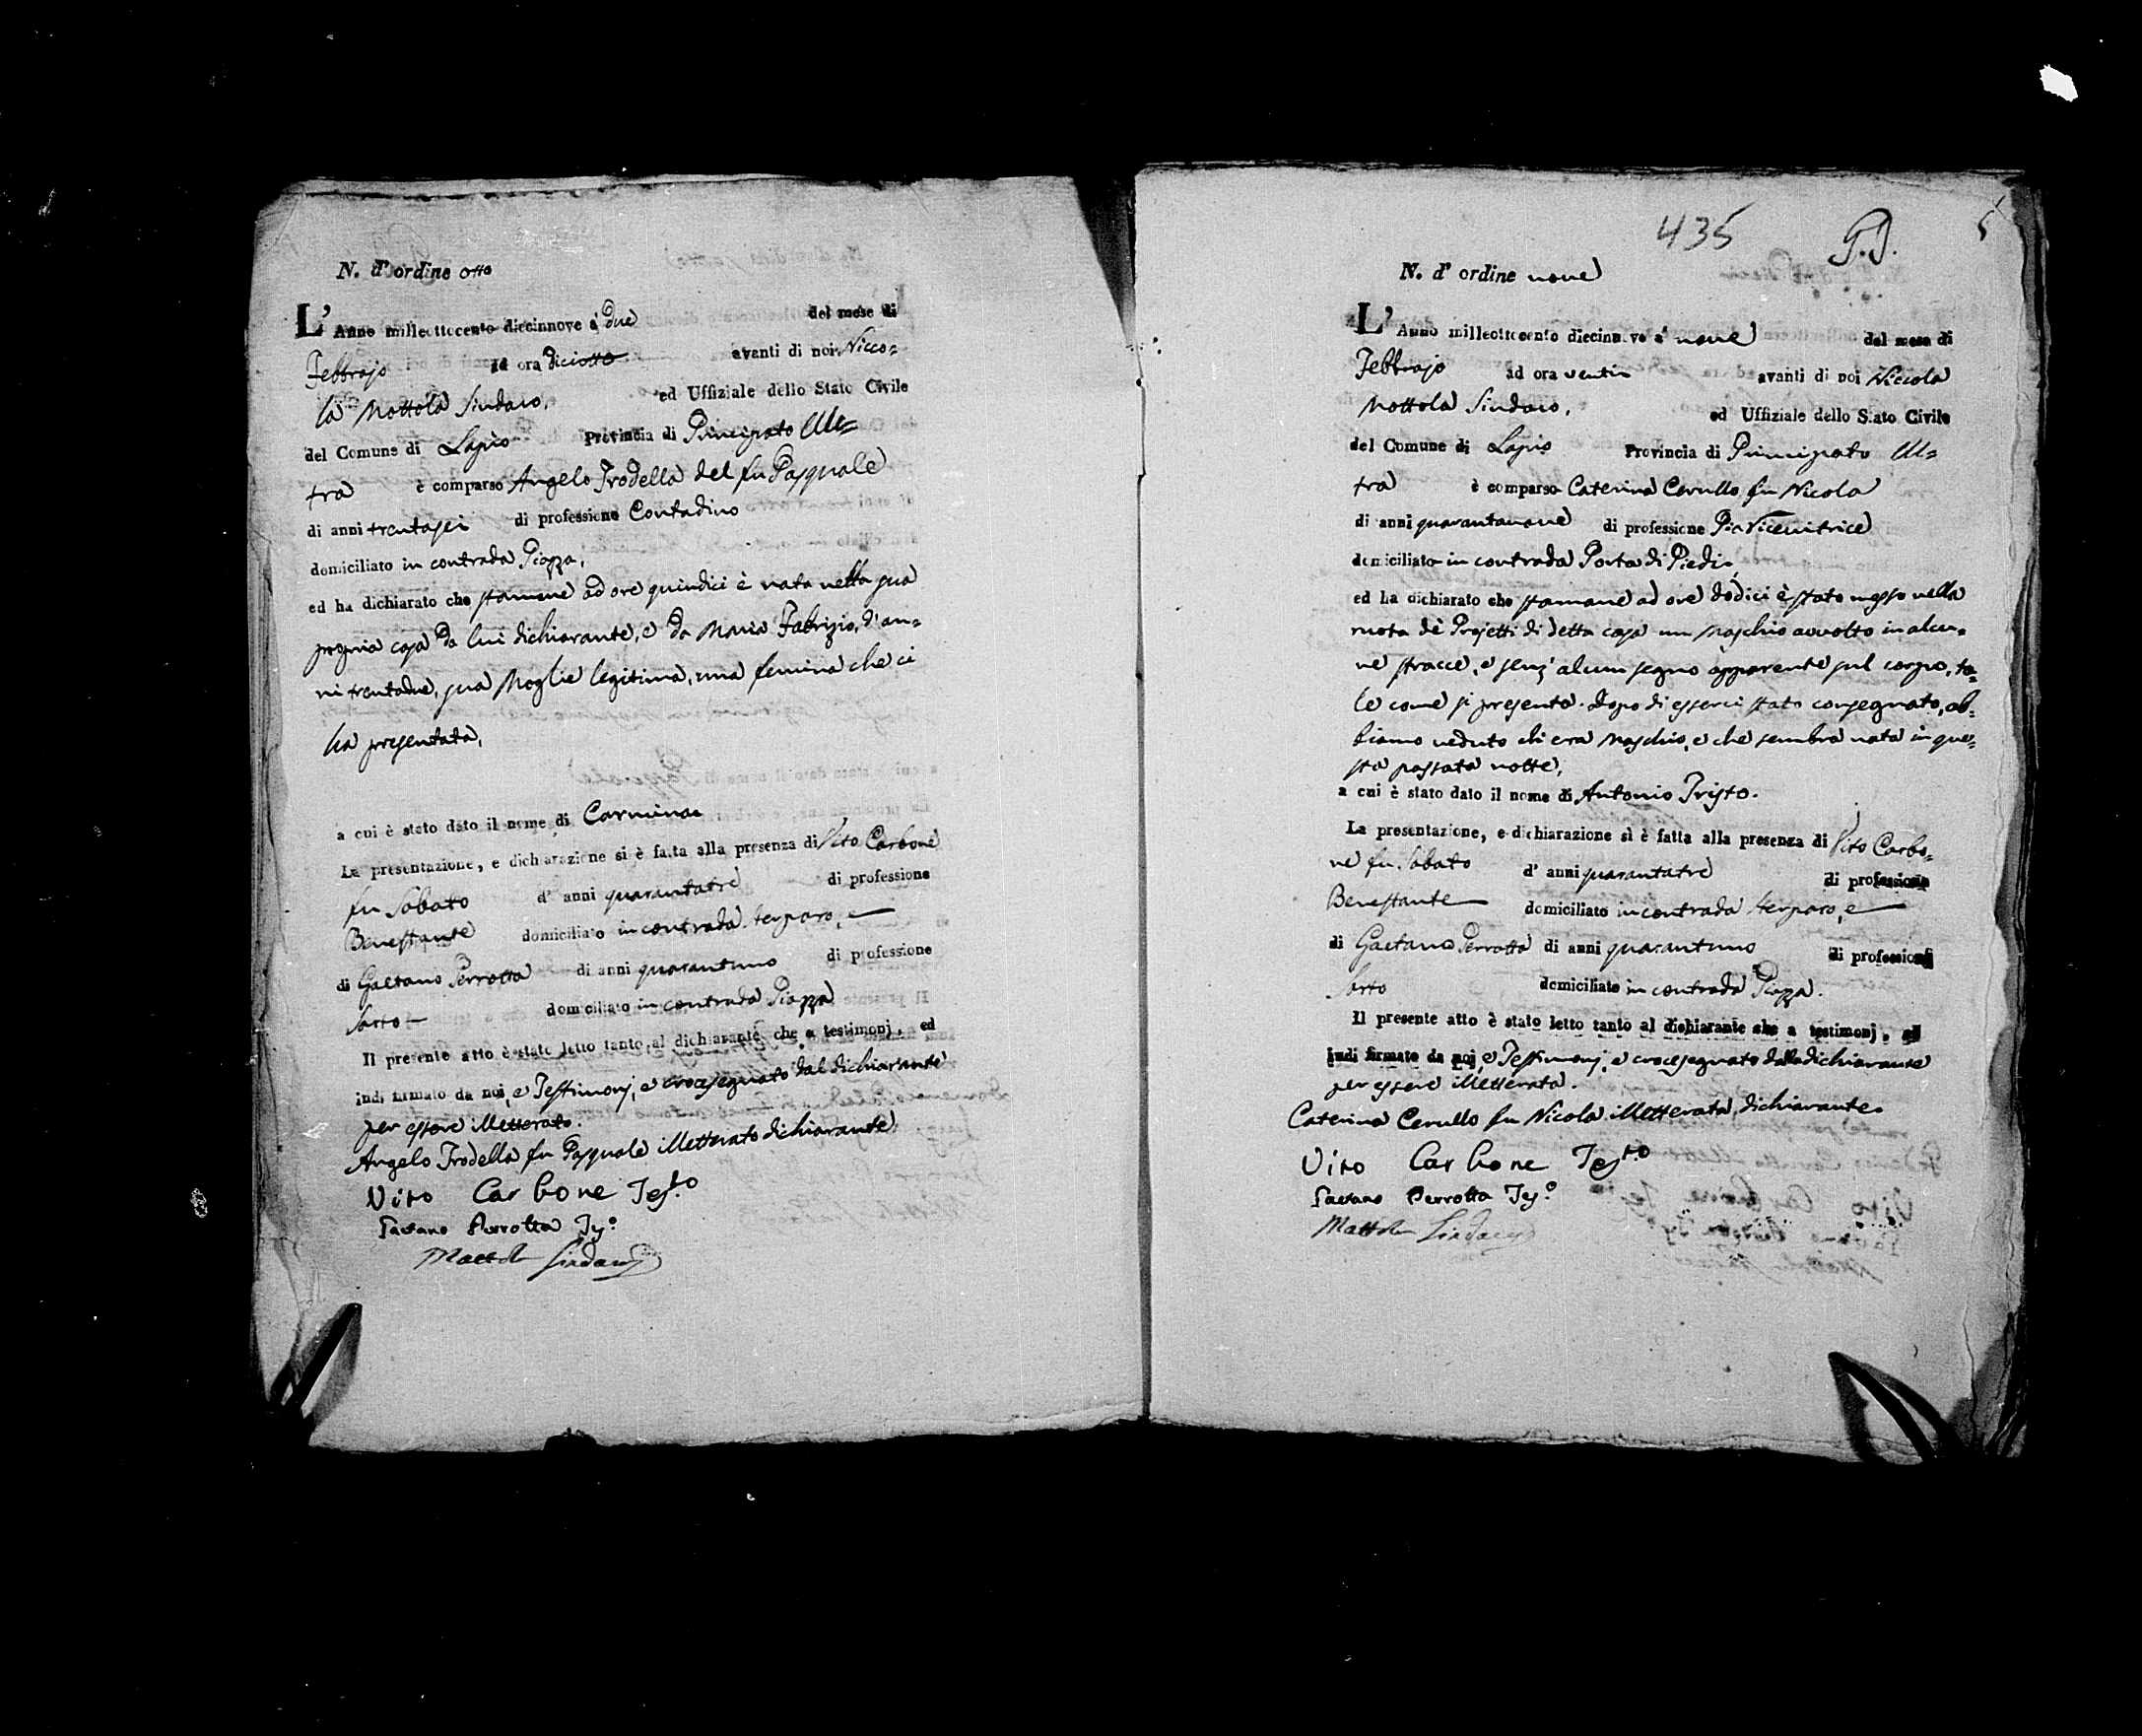 N. d' ordine otto
L' Anno milleottocento diecinnove a' due del mese di
Febbrajo ad ora diciotto avanti di noi Nicco=
la Mottola Sindaco, ed Uffiziale dello Stato Civile
del Comune di Lapio Provincia di Principato Ul=
tra è comparso Angelo Trodella del fu Pasquale
di anni trentasei di professione Contadino
domiciliato in contrada Piazza,
ed ha dichiarato che stamane ad ore quindici è nata nella sua
propria casa da lui dichiarante, e da Maria Fabrizio, d'an=
ni trentadue, sua Moglie legitima, una femina che ci
ha presentata,
a cui è stato dato il nome di Carmina
La presentazione, e dichiarazione si è fatta alla presenza di Vito Carbone
fu Sabato d' anni quarantatre di professione
Benestante domiciliato in contrada , e
di Gaetano Perrotta di anni quarantuno di professione
Sarto domiciliato in contrada Piazza
Il presente atto è stato letto tanto al dichiarante che a testimonj, ed
indi firmato da noi, e Testimonj, e crocesegnato dal dichiarante
per essere illetterato.
Angelo Trodella fu Pasquale illetterato dichiarante
Vito Carbone Testo
Gaetano Perrotta Teso
Mottola Sindaco
435 G.D. 5
N. d' ordine nove
L' Anno milleottocento diecinnove a' nove del mese di
Febbrajo ad ora venti avanti di noi Niccola
Mottola Sindaco, ed Uffiziale dello Stato Civile
del Comune di Lapio Provincia di Principato Ul=
tra è comparso Caterina Cerullo fu Nicola
di anni quarantanove di professione Pia Ricevitrice
domiciliato in contrada Porta di Piedi,
ed ha dichiarato che stamane ad ore dodici è stato messo nella
ruota de' Projetti di detta casa un Maschio avvolto in alcu=
ne stracce, e senz' alcun segno apparente sul corpo, ta=
le come si presenta. Dopo di esserci stato consegnato, ab=
biamo veduto chi era Maschio, e che sembra nata in que=
sta passata notte,
a cui è stato dato il nome di Antonio Tristo.
La presentazione, e dichiarazione si è fatta alla presenza di Vito Carbo=
ne fu Sabato d' anni quarantatre di professione
Benestante domiciliato in contrada , e
di Gaetano Perrotta di anni quarantuno di professione
Sarto domiciliato in contrada Piazza.
Il presente atto è stato letto tanto al dichiarante che a testimonj, ed
indi firmato da noi, e Testimonj, e crocesegnato dalla dichiarante
per essere illetterata.
Caterina Cerullo fu Nicola illetterata dichiarante
Vito Carbone Testo
Gaetano Perrotta Teso
Mottola Sindaco